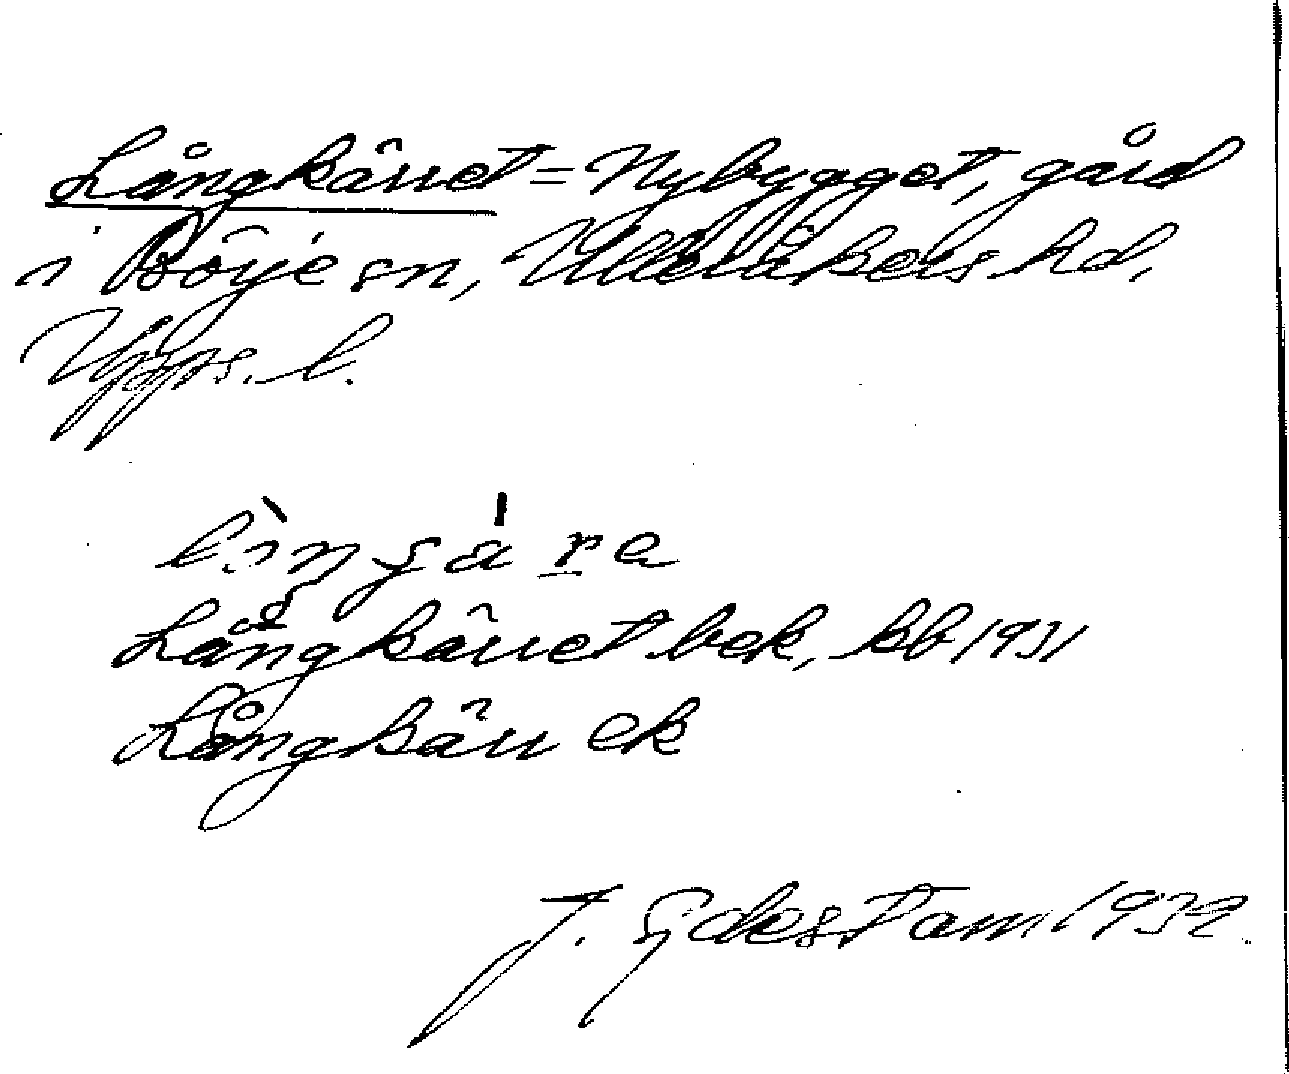 Långkärret = Nybygget, gård
i Börje sn, Ulleråkers hd,
Upps. l.
Långkärret bek, kb 1931
Långkärr ek
J. Sjdestam 1932.